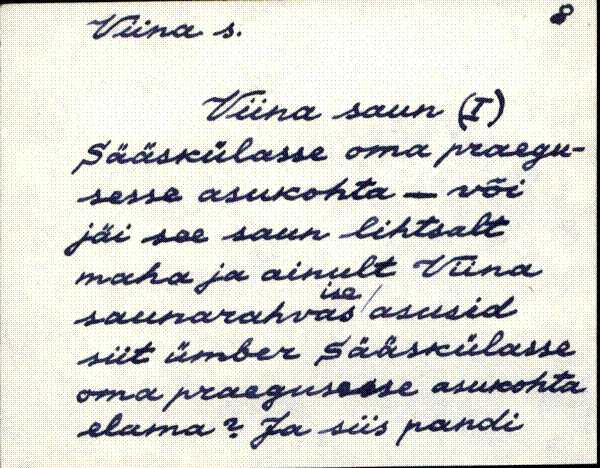 Viina s.
8
Viina saun (I)
Sääskülasse oma praegu-
sesse asukohta — või
jäi see saun lihtsalt
maha ja ainult Viina
saunarahvas ise asusid
siit ümber Sääskülasse
oma praegusesse asukohta
elama? Ja siis pandi